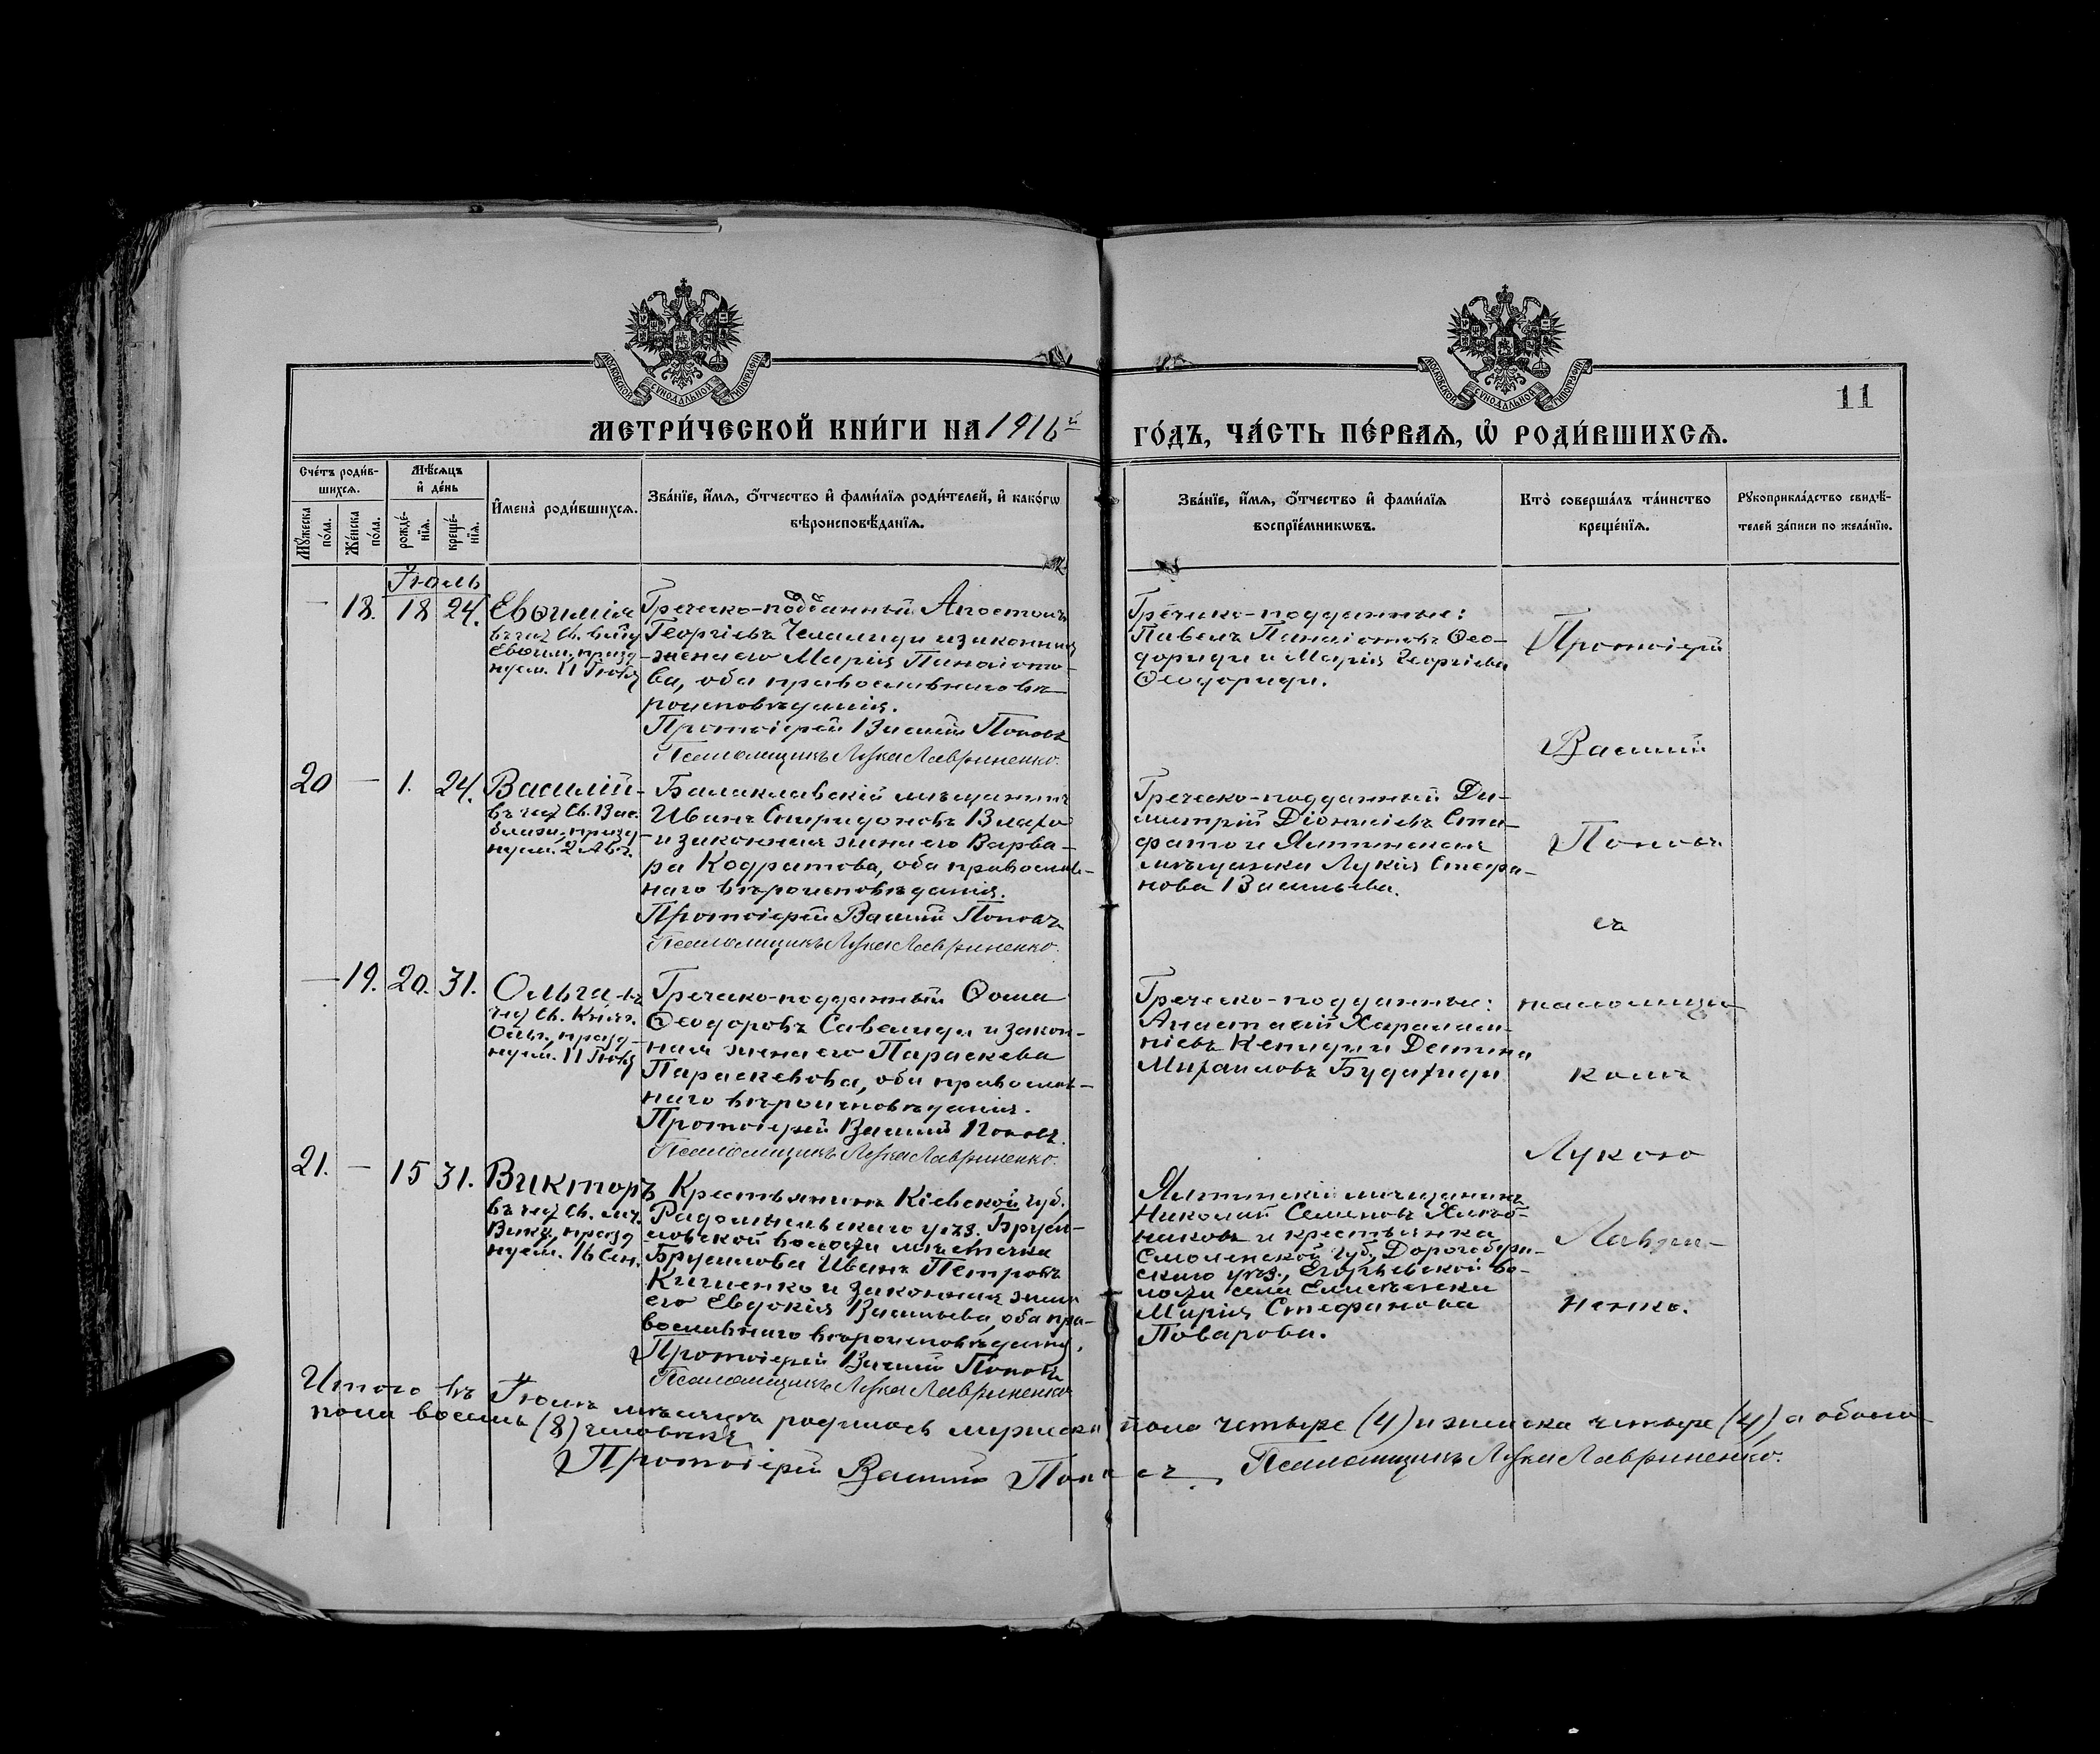 МОСКОВСКОЙ СУНОДАЛЬНОЙ ТИПОГРАФІИ
МОСКОВСКОЙ СУНОДАЛЬНОЙ ТИПОГРАФІИ
11
МЕТРИ́ЧЕСКОЙ КНИ́ГИ НА 1916й ГО́ДЪ, ЧА́СТЬ ПЕ́РВАѦ, Ѽ РОДИ́ВШИХСѦ.
Сче́тъ роди́в-
шихсѧ.
Мꙋ́жеска по́ла.
Же́нска по́ла.
Мѣ́сѧцъ
и҆ де́нь
рожде́-
нїѧ.
креще́-
нїѧ.
И҆мена̀ роди́вшихсѧ.
Зва́нїе, и҆́мѧ, ѻ҆́тчество и҆ фами́лїѧ роди́телей, и҆ како́гѡ
вѣроисповѣ́данїѧ.
Зва́нїе, и҆́мѧ, ѻ҆́тчество и҆ фами́лїѧ
воспрїе́мникѡвъ.
Кто̀ соверша́лъ та́инство
креще́нїѧ.
Рꙋкоприкла́дство свидѣ́-
телей за́писи по жела́нїю.
Іюль
— 18. 18 24.
Евѳимія
въ честь Св.
Евѳим., празд
нуем. 11 Іюля
Греческо-подданный Апостолъ
Георгіевъ и законная
жена его Марія Панаіото-
ва, оба православнаго вѣ-
роисповѣданія.
Протоіерей Василій Поповъ
Псаломщикъ Лука Лавриненко.
Греческо-подданные:
Павелъ Панаіотовъ Ѳео-
дориди и Марія Георгіева
Ѳеодориди.
20 — 1. 24.
Василій-
въ честь Св. Вас.
блажен., празд
нуем. 2 Авг.
Балаклавскій мѣщанинъ
Иванъ Спиридоновъ Влахо
и законная жена его Варва-
ра Кодратова, оба православ-
наго вѣроисповѣданія.
Протоіерей Василій Поповъ
Псаломщикъ Лука Лавриненко.
Греческо-подданный Ди-
митрій Діонисіевъ Ста-
фато и Ялтинская
мѣщанка Лукія Стефа-
нова Васильева.
— 19. 20. 31.
Ольга-въ
честь Св. Княг.
Ольг., празд-
нуем. 11 Іюля
Греческо-подданный Ѳома
Ѳеодоровъ Савелиди и закон-
ная жена его Параскева
Параскевова, оба православ-
наго вѣроисповѣданія.
Протоіерей Василій Поповъ.
Псаломщикъ Лука Лавриненко.
Греческо-подданные:
Анастасій Харалам-
піевъ и
Михаиловъ
21. — 15 31.
Викторъ
въ честь Св. муч.
Викт., празд
нуем. 16 Сен.
Крестьянинъ Кіевской губ.
Радомысльскаго уѣз. Бруси-
ловской волости мѣстечка
Брусилова Иванъ Петровъ
и законная жена
его Евдокія Васильева, оба пра-
вославнаго вѣроисповѣданія.
Протоіерей Василій Поповъ
Псаломщикъ Лука Лавриненко
Ялтинскій мѣщанинъ
Николай Семеновъ Хлѣб-
никовъ и крестьянка
Смоленской губ., Дорогобуж-
скаго уѣз., Егорьевской во-
лости села
Марія Стефанова
Поварова.
Протоіерей
Василій
Поповъ
съ
псаломщи-
комъ
Лукою
Лаври-
ненко.
Итого въ Іюлѣ мѣсяцѣ родилось мужеска пола четыре (4) и женска четыре (4) а обоего
пола восемь (8) человѣкъ
Протоіерей Василій Поповъ. Псаломщикъ Лука Лавриненко.